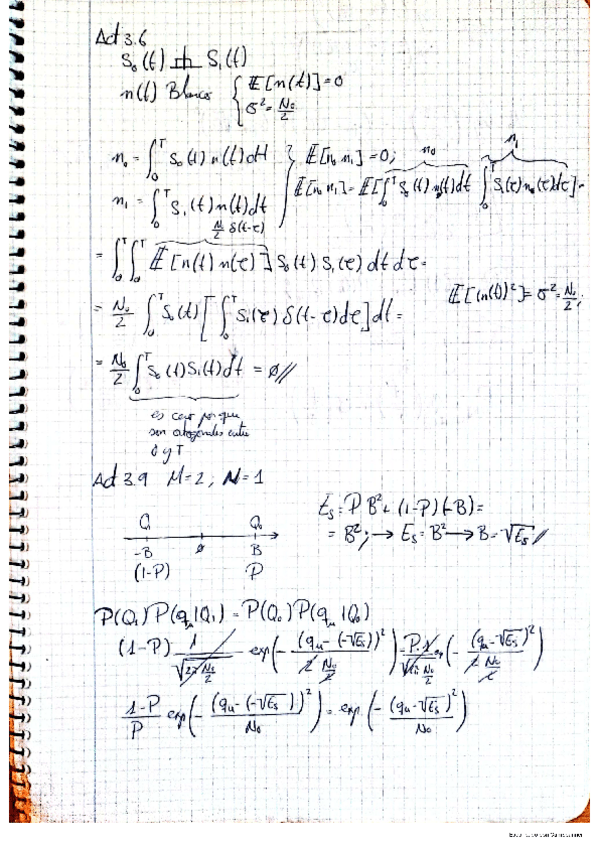 Act 3.6
S₀(t) ⊥ S₁(t)
n(t) Blanco { E[n(t)] = 0
σ² = N₀/2
n₀ = ∫₀ᵀ S₀(t) n(t) dt } E[n₀ n₁] = 0;
n₁ = ∫₀ᵀ S₁(t) n(t) dt
n₀ n₁
E[n₀ n₁] = E[∫₀ᵀ S₀(t) n(t) dt ∫₀ᵀ S₁(τ) n(τ) dτ] =
N₀/2 δ(t-τ)
= ∫₀ᵀ ∫₀ᵀ E[n(t) n(τ)] S₀(t) S₁(τ) dt dτ =
E[(n(t))²] = σ² = N₀/2;
= N₀/2 ∫₀ᵀ S₀(t) [∫₀ᵀ S₁(τ) δ(t-τ) dτ] dt =
= N₀/2 ∫₀ᵀ S₀(t) S₁(t) dt = ∅//
es cero porque
son ortogonales entre
0 y T
Act 3.9 M=2; N=1
Q₁ Q₀
-B ∅ B
(1-P) P
Es = P B² + (1-P)(-B) =
= B²; → Es = B² → B = √Es //
P(Q₁) P(qᵤ|Q₁) = P(Q₀) P(qᵤ|Q₀)
(1-P) 1/√(2π N₀/2) exp(- (qᵤ-(-√Es))²/(2 N₀/2)) = P·1/√(2π N₀/2) exp(- (qᵤ-√Es)²/(2 N₀/2))
(1-P)/P exp(- (qᵤ-(-√Es))²/N₀) = exp(- (qᵤ-√Es)²/N₀)